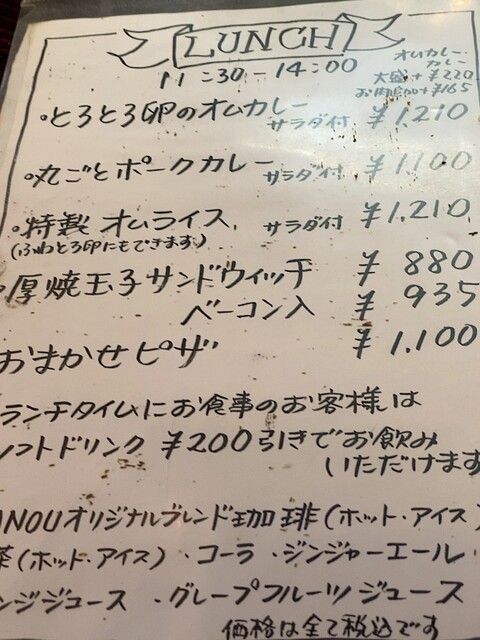 LUNCH
11:30-14:00
オムカレー・
カレー
大盛+¥220
お肉追加+¥165
・とろとろ卵のオムカレー サラダ付 ¥1,210
・丸ごとポークカレー サラダ付 ¥1100
・特製オムライス サラダ付 ¥1,210
(ふわとろ卵にもできます)
・厚焼玉子サンドウィッチ ¥880
ベーコン入 ¥935
おまかせピザ ¥1,100
ランチタイムにお食事のお客様は
ソフトドリンク ¥200引きでお飲み
いただけます
INOUオリジナルブレンド珈琲(ホット・アイス)
茶(ホット・アイス)・コーラ・ジンジャーエール
ンジジュース ・グレープフルーツジュース
価格は全て税込です